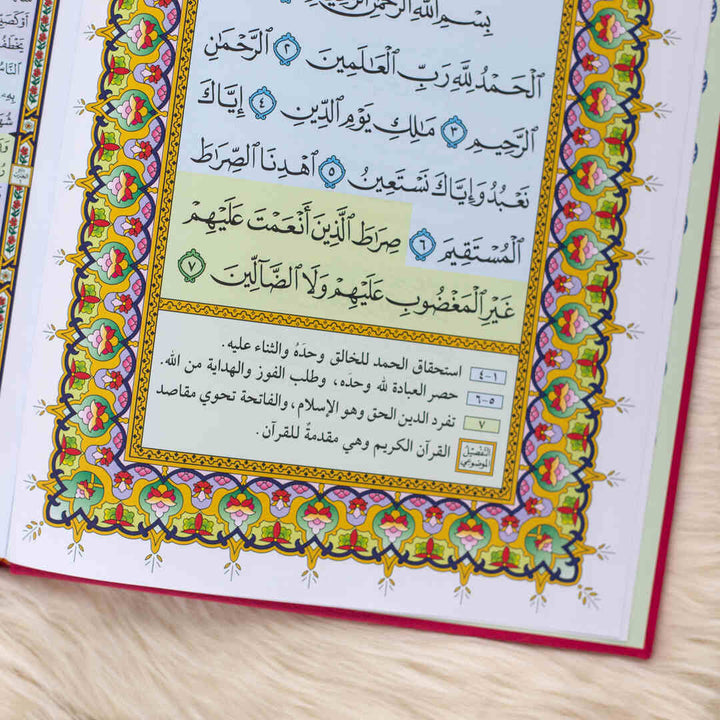 بِسْمِ ٱللَّهِ ٱلرَّحْمَٰنِ ٱلرَّحِيمِ
ٱلْحَمْدُ لِلَّهِ رَبِّ ٱلْعَٰلَمِينَ ٢ ٱلرَّحْمَٰنِ
ٱلرَّحِيمِ ٣ مَٰلِكِ يَوْمِ ٱلدِّينِ ٤ إِيَّاكَ
نَعْبُدُ وَإِيَّاكَ نَسْتَعِينُ ٥ ٱهْدِنَا ٱلصِّرَٰطَ
ٱلْمُسْتَقِيمَ ٦ صِرَٰطَ ٱلَّذِينَ أَنْعَمْتَ عَلَيْهِمْ
غَيْرِ ٱلْمَغْضُوبِ عَلَيْهِمْ وَلَا ٱلضَّآلِّينَ ٧
١-٤ استحقاق الحمد للخالق وحدَهُ والثناء عليه.
٥-٦ حصر العبادة لله وحدَه، وطلب الفوز والهداية من الله.
٧ تفرد الدين الحق وهو الإسلام، والفاتحة تحوي مقاصد
القرآن الكريم وهي مقدمةٌ للقرآن.
التفصيل
الموضوعي